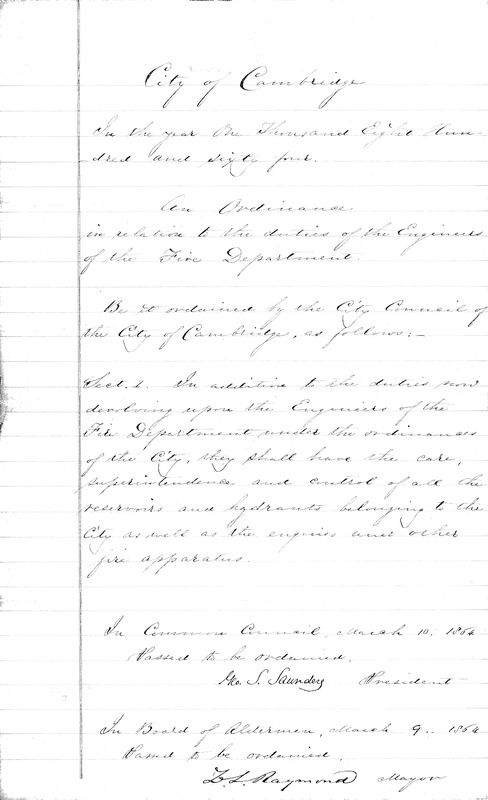 City of Cambridge
In the year One Thousand Eight Hun-
dred and sixty four.
An Ordinance
in relation to the duties of the Engineers
of the Fire Department.
Be it ordained by the City Council of
the City of Cambridge, as follows:-
Sect. 1. In addition to the duties now
devolving upon the Engineers of the
Fire Department under the ordinances
of the City, they shall have the care,
superintendence and control of all the
reservoirs and hydrants belonging to the
City as well as the engines and other
fire apparatus.
In Common Council, March 10, 1864
Passed to be ordained.
Geo. S. Saunders President
In Board of Aldermen, March 9. 1864
Passed to be ordained.
Z. L. Raymond Mayor